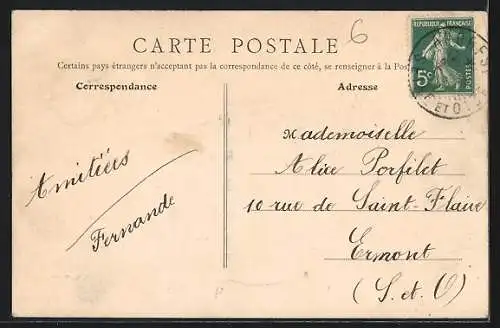 CARTE POSTALE
6
Certains pays étrangers n'acceptant pas la correspondance de ce côté, se renseigner à la Pos
Correspondance
Adresse
RÉPUBLIQUE FRANÇAISE
5c
POSTES
ET OI
Mademoiselle
Alice Porfilet
10 rue de Saint-Flaive
Ermont
(S. et. O)
Amitiées
Fernande